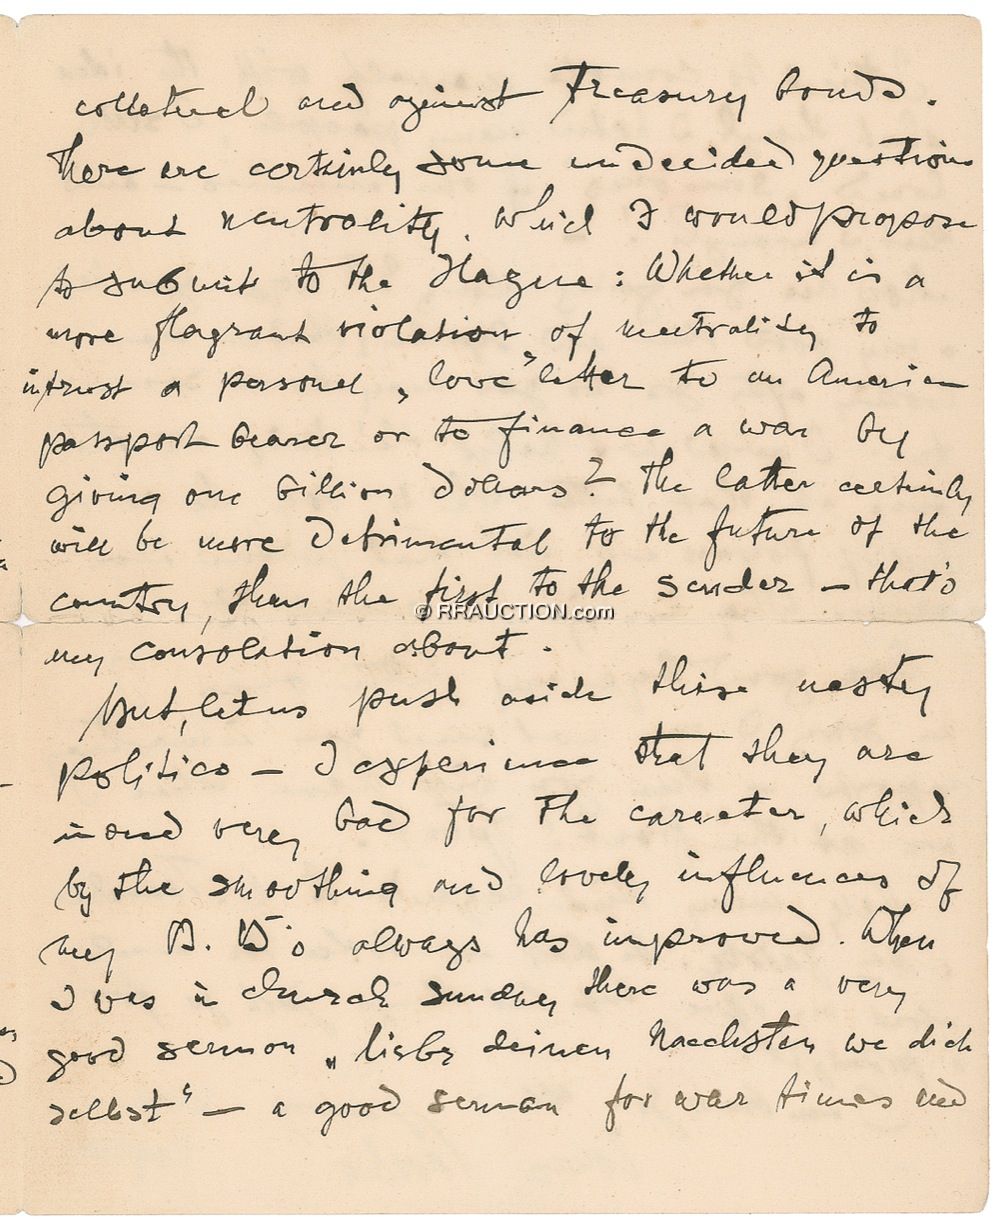 collateral and against Treasury bonds.
There are certainly some undecided questions
about neutrality, which I would propose
to submit to the Hague: Whether it is a
more flagrant violation of neutrality to
intrust a personel „love” letter to an American
passport bearer or to finance a war by
giving one billion dollars? The latter certainly
will be more detrimental to the future of the
country, than the first to the sender — that's
© RRAUCTION.com
my consolation about.
But, let us push aside these nasty
politics — I experience that they are
indeed very bad for the caracter, which
by the smoothing and lovely influences of
my B. B's always has improved. When
I was in church Sunday there was a very
good sermon „liebe deinen Naechsten we dich
selbst“ — a good serman for war times and